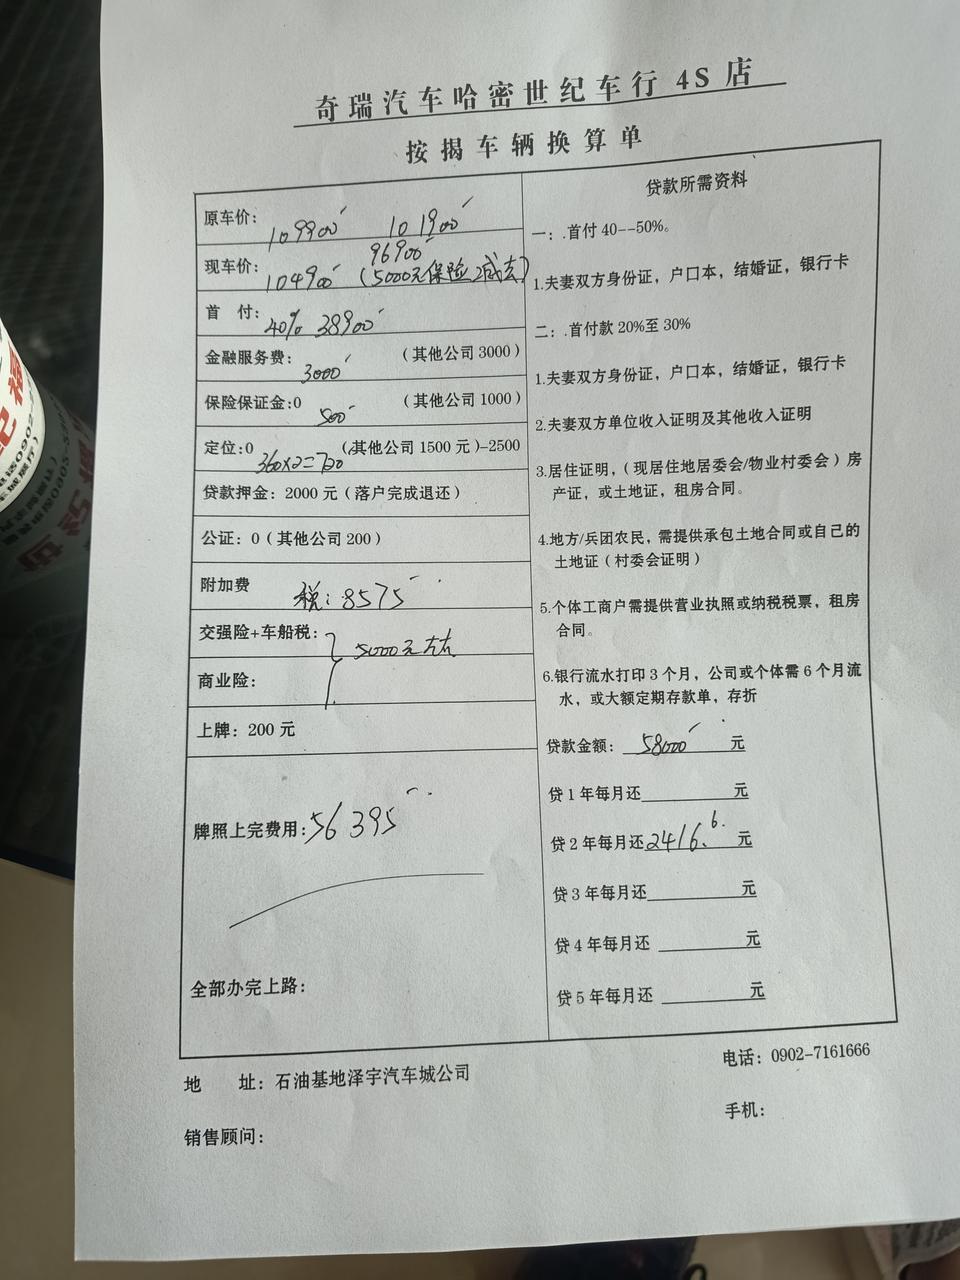 奇瑞汽车哈密世纪车行 4S 店
按揭车辆换算单
原车价: 109900 101900
96900
现车价: 104900 (5000元保险减去)
首 付: 40% 38900
金融服务费: 3000 (其他公司 3000)
保险保证金:0 500 (其他公司 1000)
定位:0 360×2=720 (其他公司 1500 元)-2500
贷款押金: 2000 元(落户完成退还)
公证: 0(其他公司 200)
附加费 税: 8575
交强险+车船税: 5000元左右
商业险:
上牌: 200 元
牌照上完费用: 56395
全部办完上路:
贷款所需资料
一: .首付 40--50%。
1.夫妻双方身份证, 户口本, 结婚证, 银行卡
二: .首付款 20%至 30%
1.夫妻双方身份证, 户口本, 结婚证, 银行卡
2.夫妻双方单位收入证明及其他收入证明
3.居住证明, (现居住地居委会/物业村委会) 房
产证, 或土地证, 租房合同。
4.地方/兵团农民, 需提供承包土地合同或自己的
土地证(村委会证明)
5.个体工商户需提供营业执照或纳税税票, 租房
合同。
6.银行流水打印 3 个月, 公司或个体需 6 个月流
水, 或大额定期存款单, 存折
贷款金额: 58000 元
贷 1 年每月还 元
贷 2 年每月还 2416.6 元
贷 3 年每月还 元
贷 4 年每月还 元
贷 5 年每月还 元
地 址: 石油基地泽宇汽车城公司
电话: 0902-7161666
销售顾问:
手机: